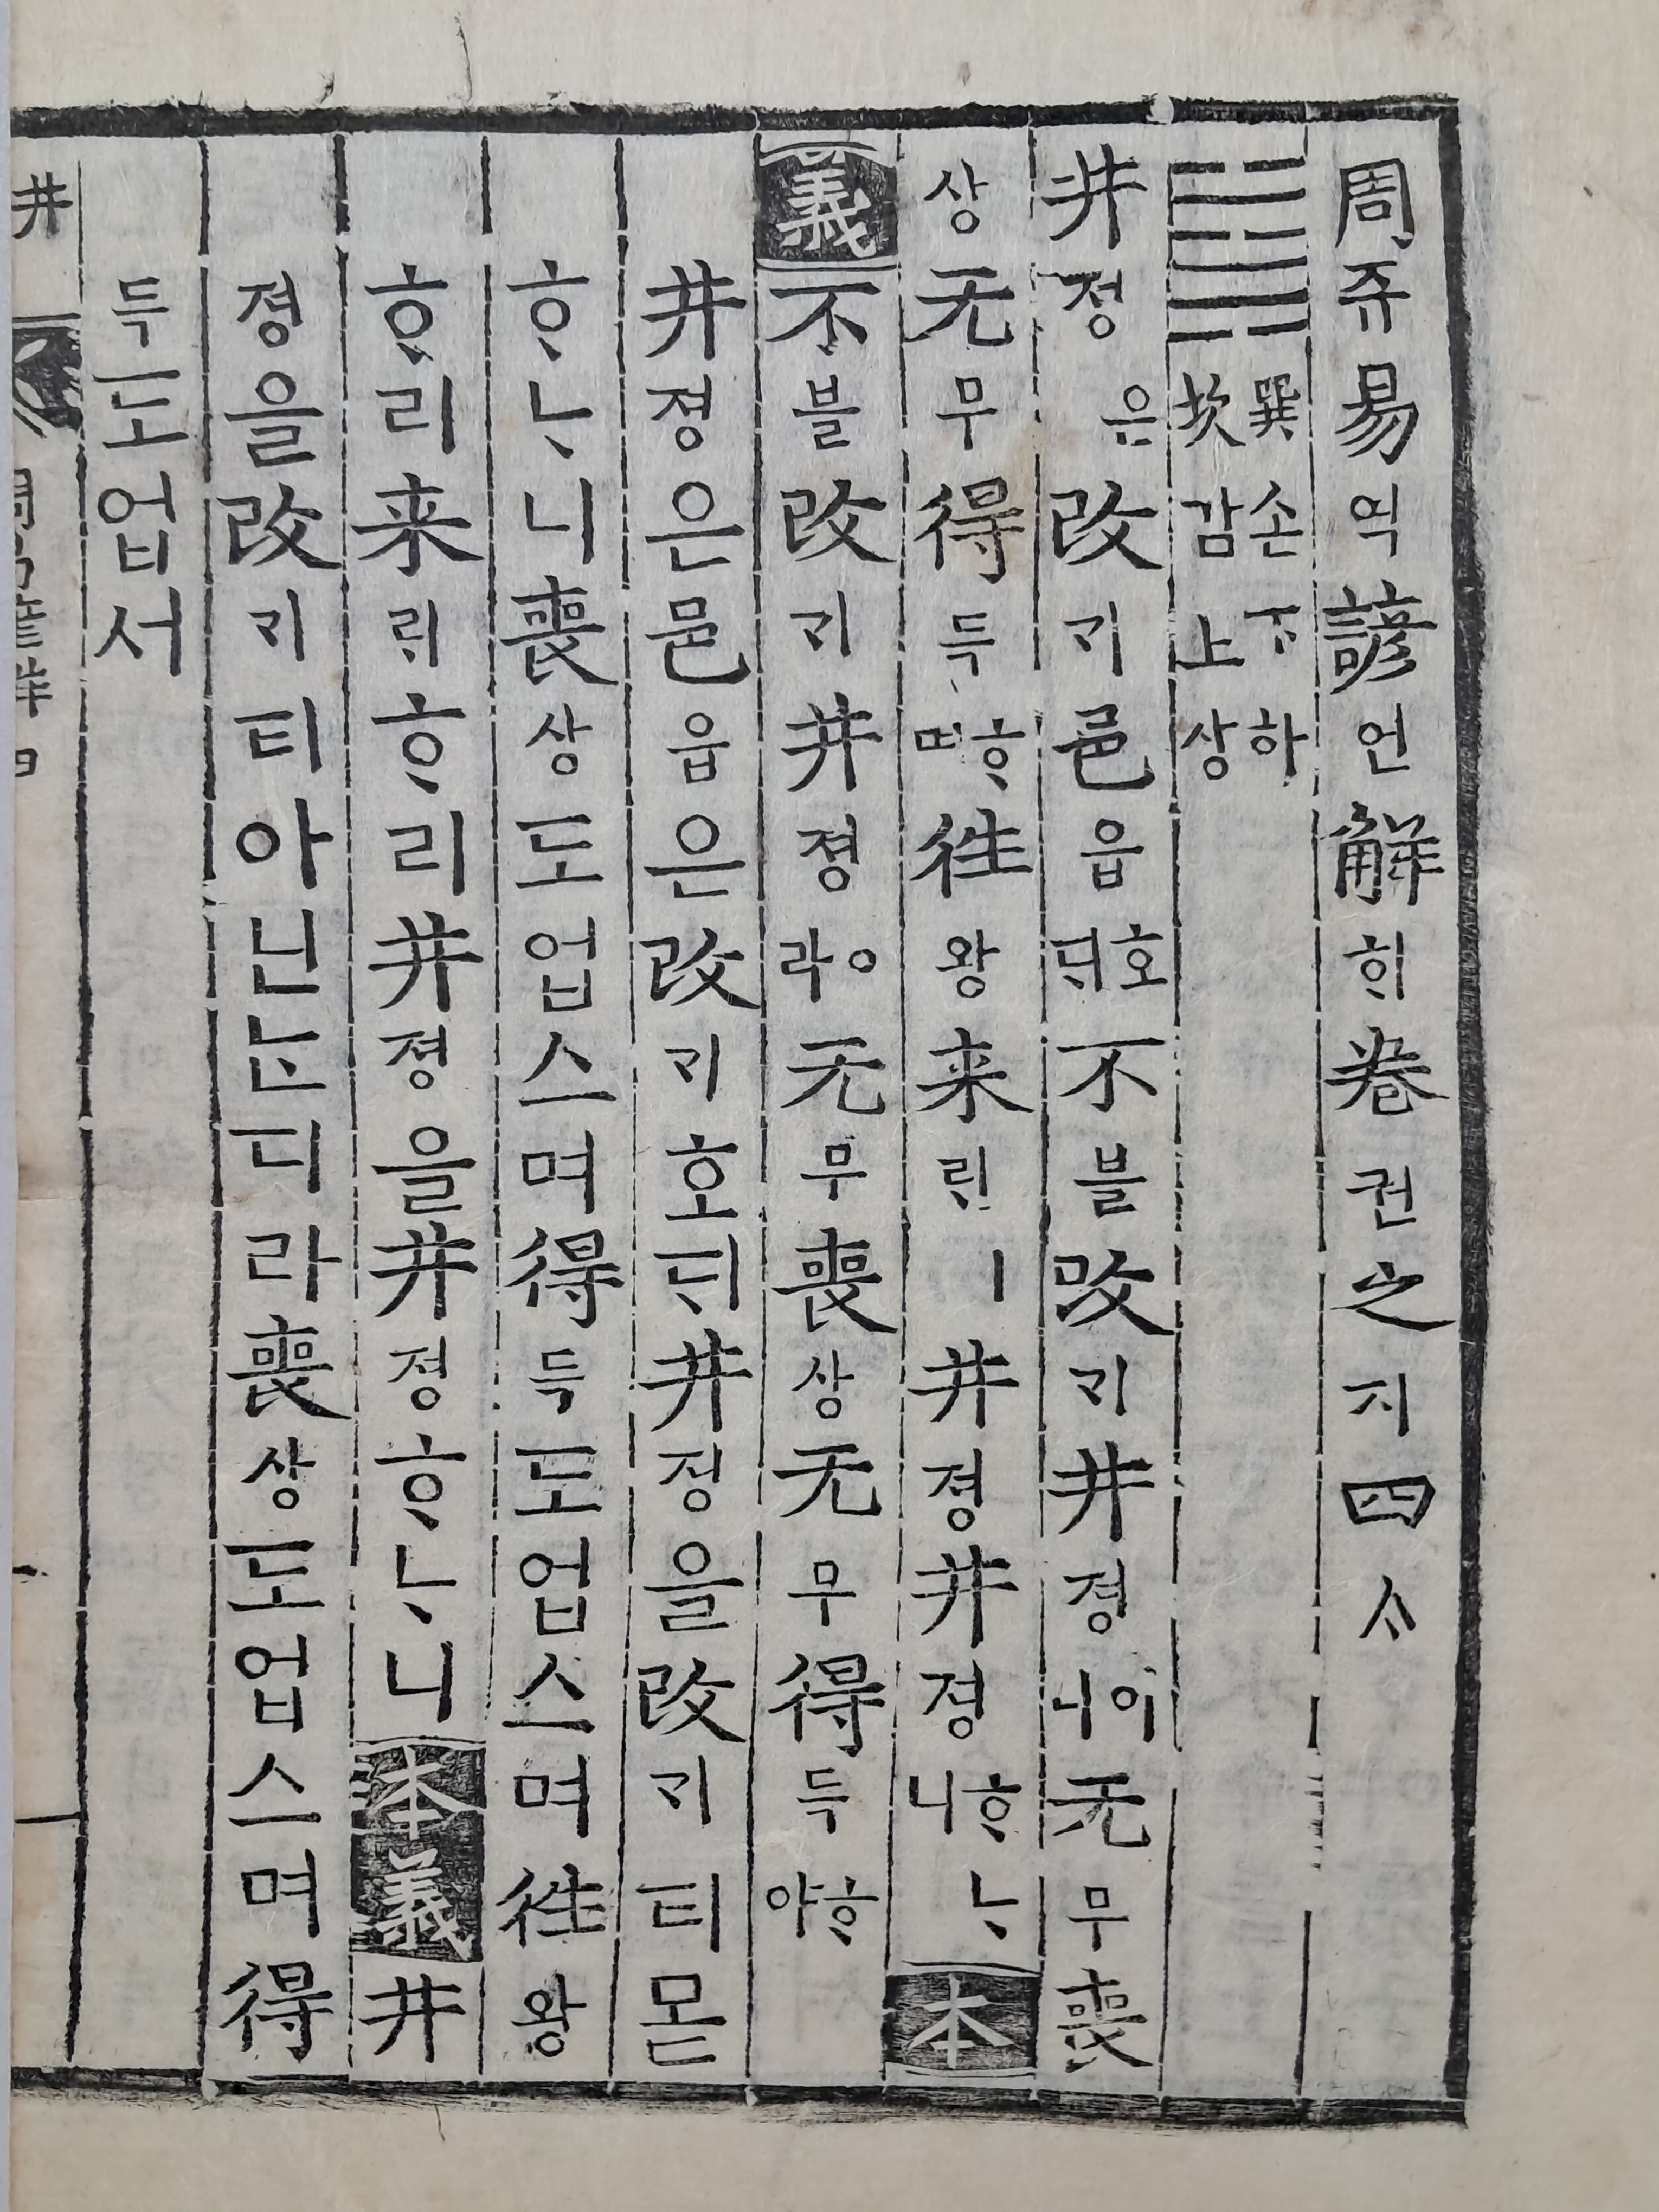 周쥬易역諺언解ᄒᆡ卷권之지四ᄉᆞ
䷯ 巽손下하
坎감上상
井졍은改ᄀᆡ邑읍호ᄃᆡ不블改ᄀᆡ井졍이니无무喪
상无무得득ᄒᆞ며往왕来ᄅᆡㅣ井졍井졍ᄒᆞᄂᆞ니本
義不블改ᄀᆡ井졍이라无무喪상无무得득ᄒᆞ야
井졍은邑읍은改ᄀᆡ호ᄃᆡ井졍을改ᄀᆡ티몯
ᄒᆞᄂᆞ니喪상도업스며得득도업스며往왕
ᄒᆞ리来ᄅᆡᄒᆞ리井졍을井졍ᄒᆞᄂᆞ니本義井
졍을改ᄀᆡ티아닌ᄂᆞᆫ디라喪상도업스며得
득도업서
井